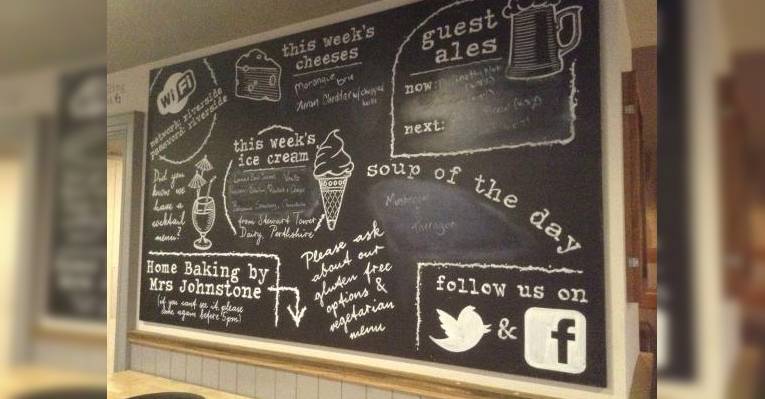 WiFi
network: riverside
password: riverside
this week's
cheeses
brie
Arran Cheddar w/ chopped
guest
ales
now:
next:
this week's
ice cream
from Stewart Tower
Dairy, Perthshire
Did you
know we
have a
cocktail
menu?
soup of the day
Tarragon
Please ask
about our
gluten free
options &
vegetarian
menu
Home Baking by
Mrs Johnstone
(if you can't see it please
come again before 5pm)
follow us on
&
f